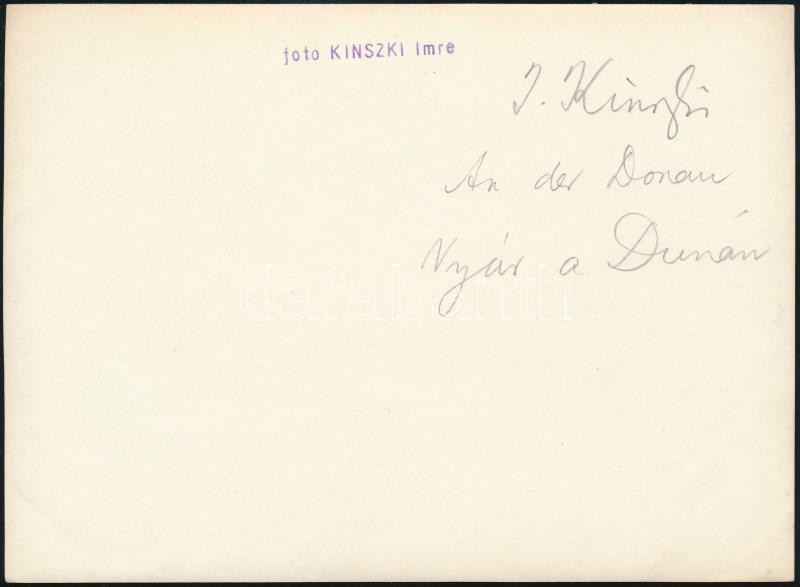 foto KINSZKI Imre
J. Kinszki
An der Donau
Nyár a Dunán
darabanth